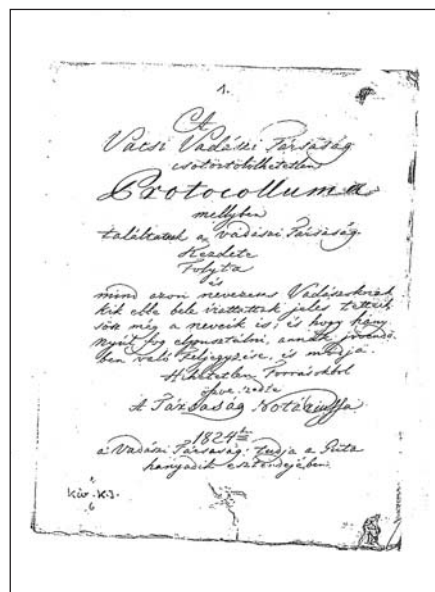 1.
A
Vácsi Vadászi Társaság
Protocolluma
mellyben
találtatnak a vadászi Társaság
Kezdete
Folyta
és
mind azon nevezetes Vadászoknak
kik ebbe bele irattattak jeles tetteik
sőt még a neveik is; és hogy hány
nyúl fog elpusztúlni, annak jövendő
ben való feljegyzése, és módja
Hihetetlen Forrásokból
öszve szedte
A Társaság Notáriussa
1824
a Vadászi Társaság tudja a
hanyadik esztendejében